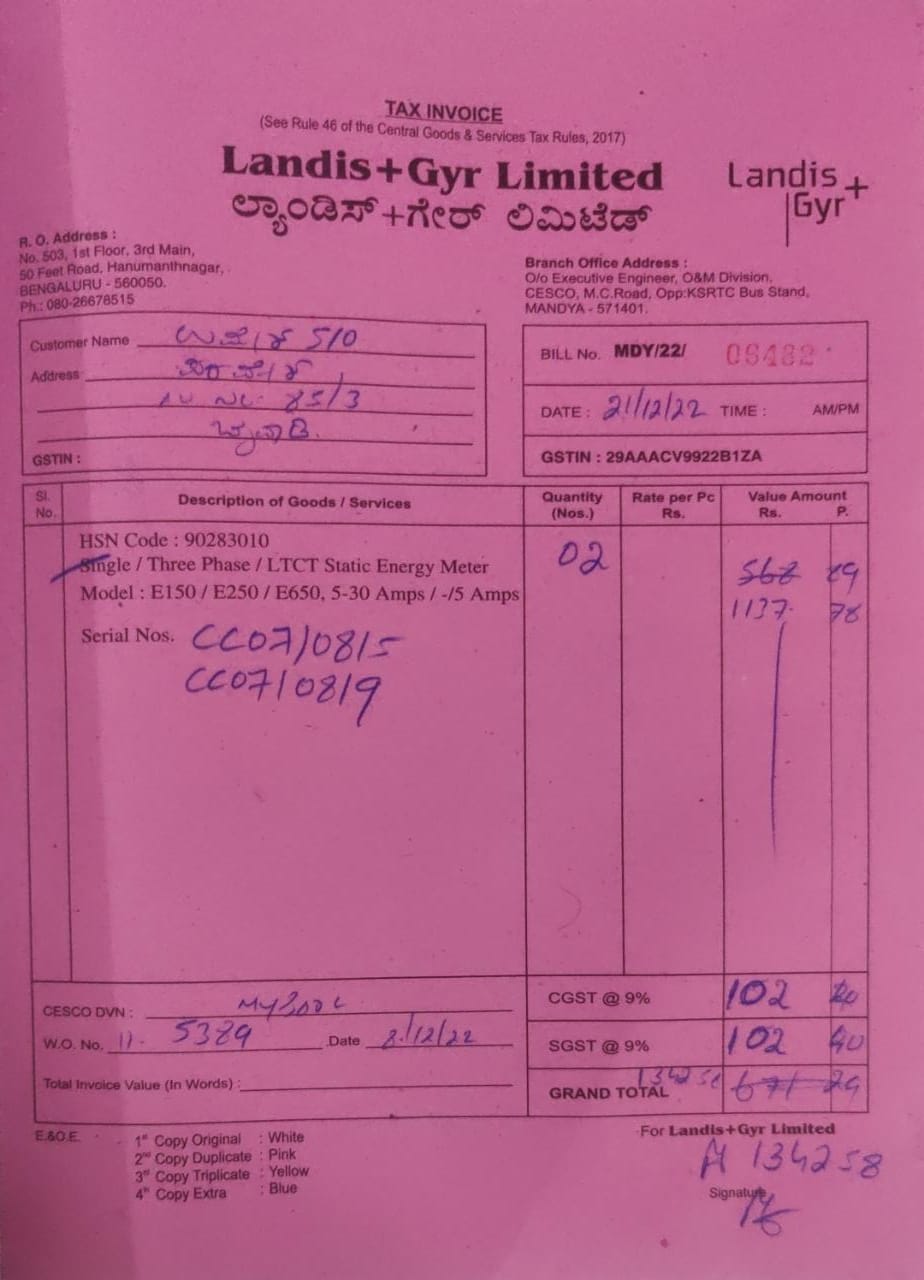 TAX INVOICE
(See Rule 46 of the Central Goods & Services Tax Rules, 2017)
Landis+Gyr Limited
ಲ್ಯಾಂಡಿಸ್+ಗೇರ್ ಲಿಮಿಟೆಡ್
Landis+
Gyr
R. O. Address :
No. 503, 1st Floor, 3rd Main,
50 Feet Road, Hanumanthnagar,
BENGALURU - 560050.
Ph.: 080-26678515
Branch Office Address :
O/o Executive Engineer, O&M Division,
CESCO, M.C.Road, Opp:KSRTC Bus Stand,
MANDYA - 571401.
Customer Name S/O
Address
85/3
GSTIN :
BILL No. MDY/22/ 06482
DATE : 21/12/22 TIME : AM/PM
GSTIN : 29AAACV9922B1ZA
Sl. No. Description of Goods / Services Quantity (Nos.) Rate per Pc Rs. Value Amount Rs. P.
HSN Code : 90283010
Single / Three Phase / LTCT Static Energy Meter 02 568 89
Model : E150 / E250 / E650, 5-30 Amps / -/5 Amps 1137 78
Serial Nos. CC070815
CC070819
CESCO DVN :
W.O. No. 11. 5389 Date 8/12/22
Total Invoice Value (In Words) :
CGST @ 9% 102 40
SGST @ 9% 102 40
GRAND TOTAL 1342 58 671 29
E.&O.E.
1st Copy Original : White
2nd Copy Duplicate : Pink
3rd Copy Triplicate : Yellow
4th Copy Extra : Blue
For Landis+Gyr Limited
134258
Signature